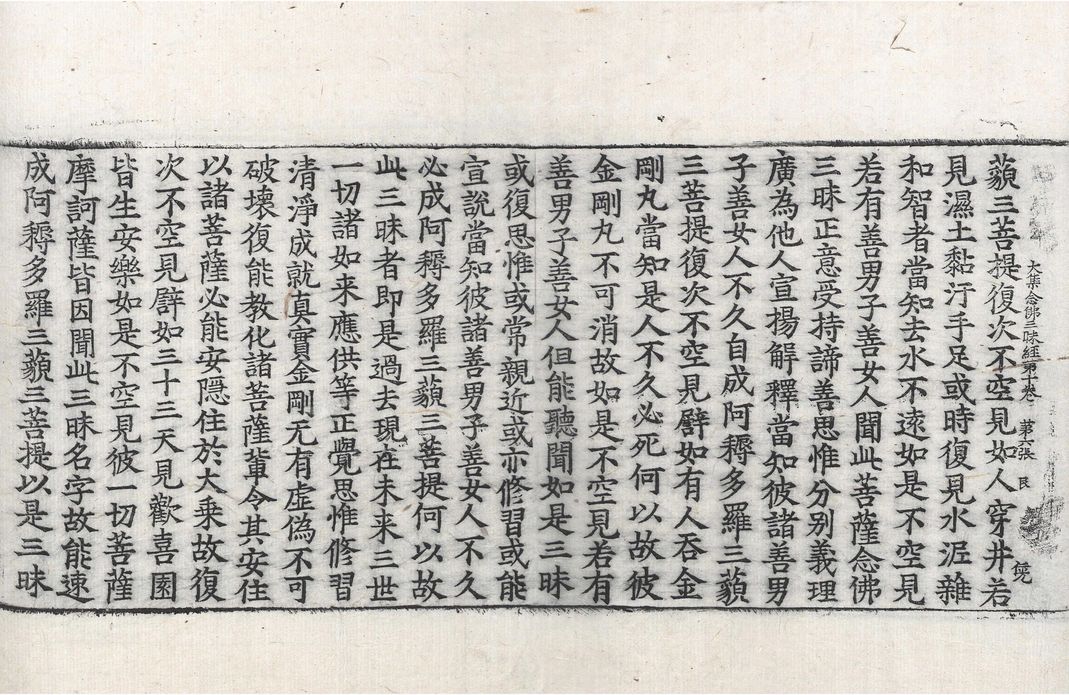 大集念佛三昧經第十卷　第六張　民
藐三菩提復次不空見如人穿井若
見濕土黏汙手足或時復見水泥雜
和智者當知去水不遠如是不空見
若有善男子善女人聞此菩薩念佛
三昧正意受持諦善思惟分别義理
廣為他人宣揚解釋當知彼諸善男
子善女人不久自成阿耨多羅三藐
三菩提復次不空見譬如有人吞金
剛丸當知是人不久必死何以故彼
金剛丸不可消故如是不空見若有
善男子善女人但能聽聞如是三昧
或復思惟或常親近或亦修習或能
宣說當知彼諸善男子善女人不久
必成阿耨多羅三藐三菩提何以故
此三昧者即是過去現在未来三世
一切諸如来應供等正覺思惟修習
清淨成就真實金剛无有虛偽不可
破壞復能教化諸菩薩軰令其安住
以諸菩薩必能安隱住於大乗故復
次不空見譬如三十三天見歡喜園
皆生安樂如是不空見彼一切菩薩
摩訶薩皆因聞此三昧名字故能速
成阿耨多羅三藐三菩提以是三昧